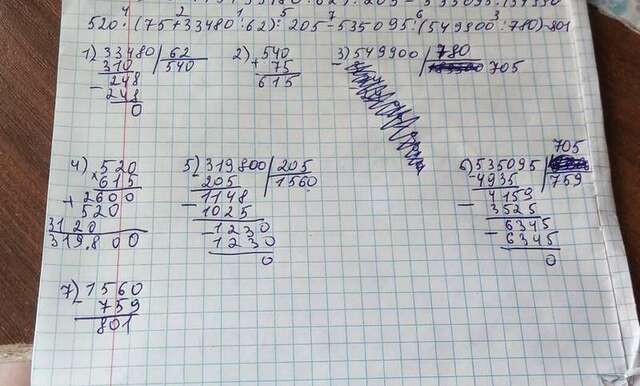 4 2 5 7 6 3
520·(75+33480:62):205-535095:(549900:780)=801
1) 33480 | 62
310 | 540
- 248
248
0
2) 540
+ 75
615
3) 549900 | 780
705
4) 520
× 615
2600
+ 520
3120
319.800
5) 319800 | 205
205 | 1560
- 1148
1025
- 1230
1230
0
705
6) 535095
4935 | 759
- 4159
3525
- 6345
6345
0
7) - 1560
759
801